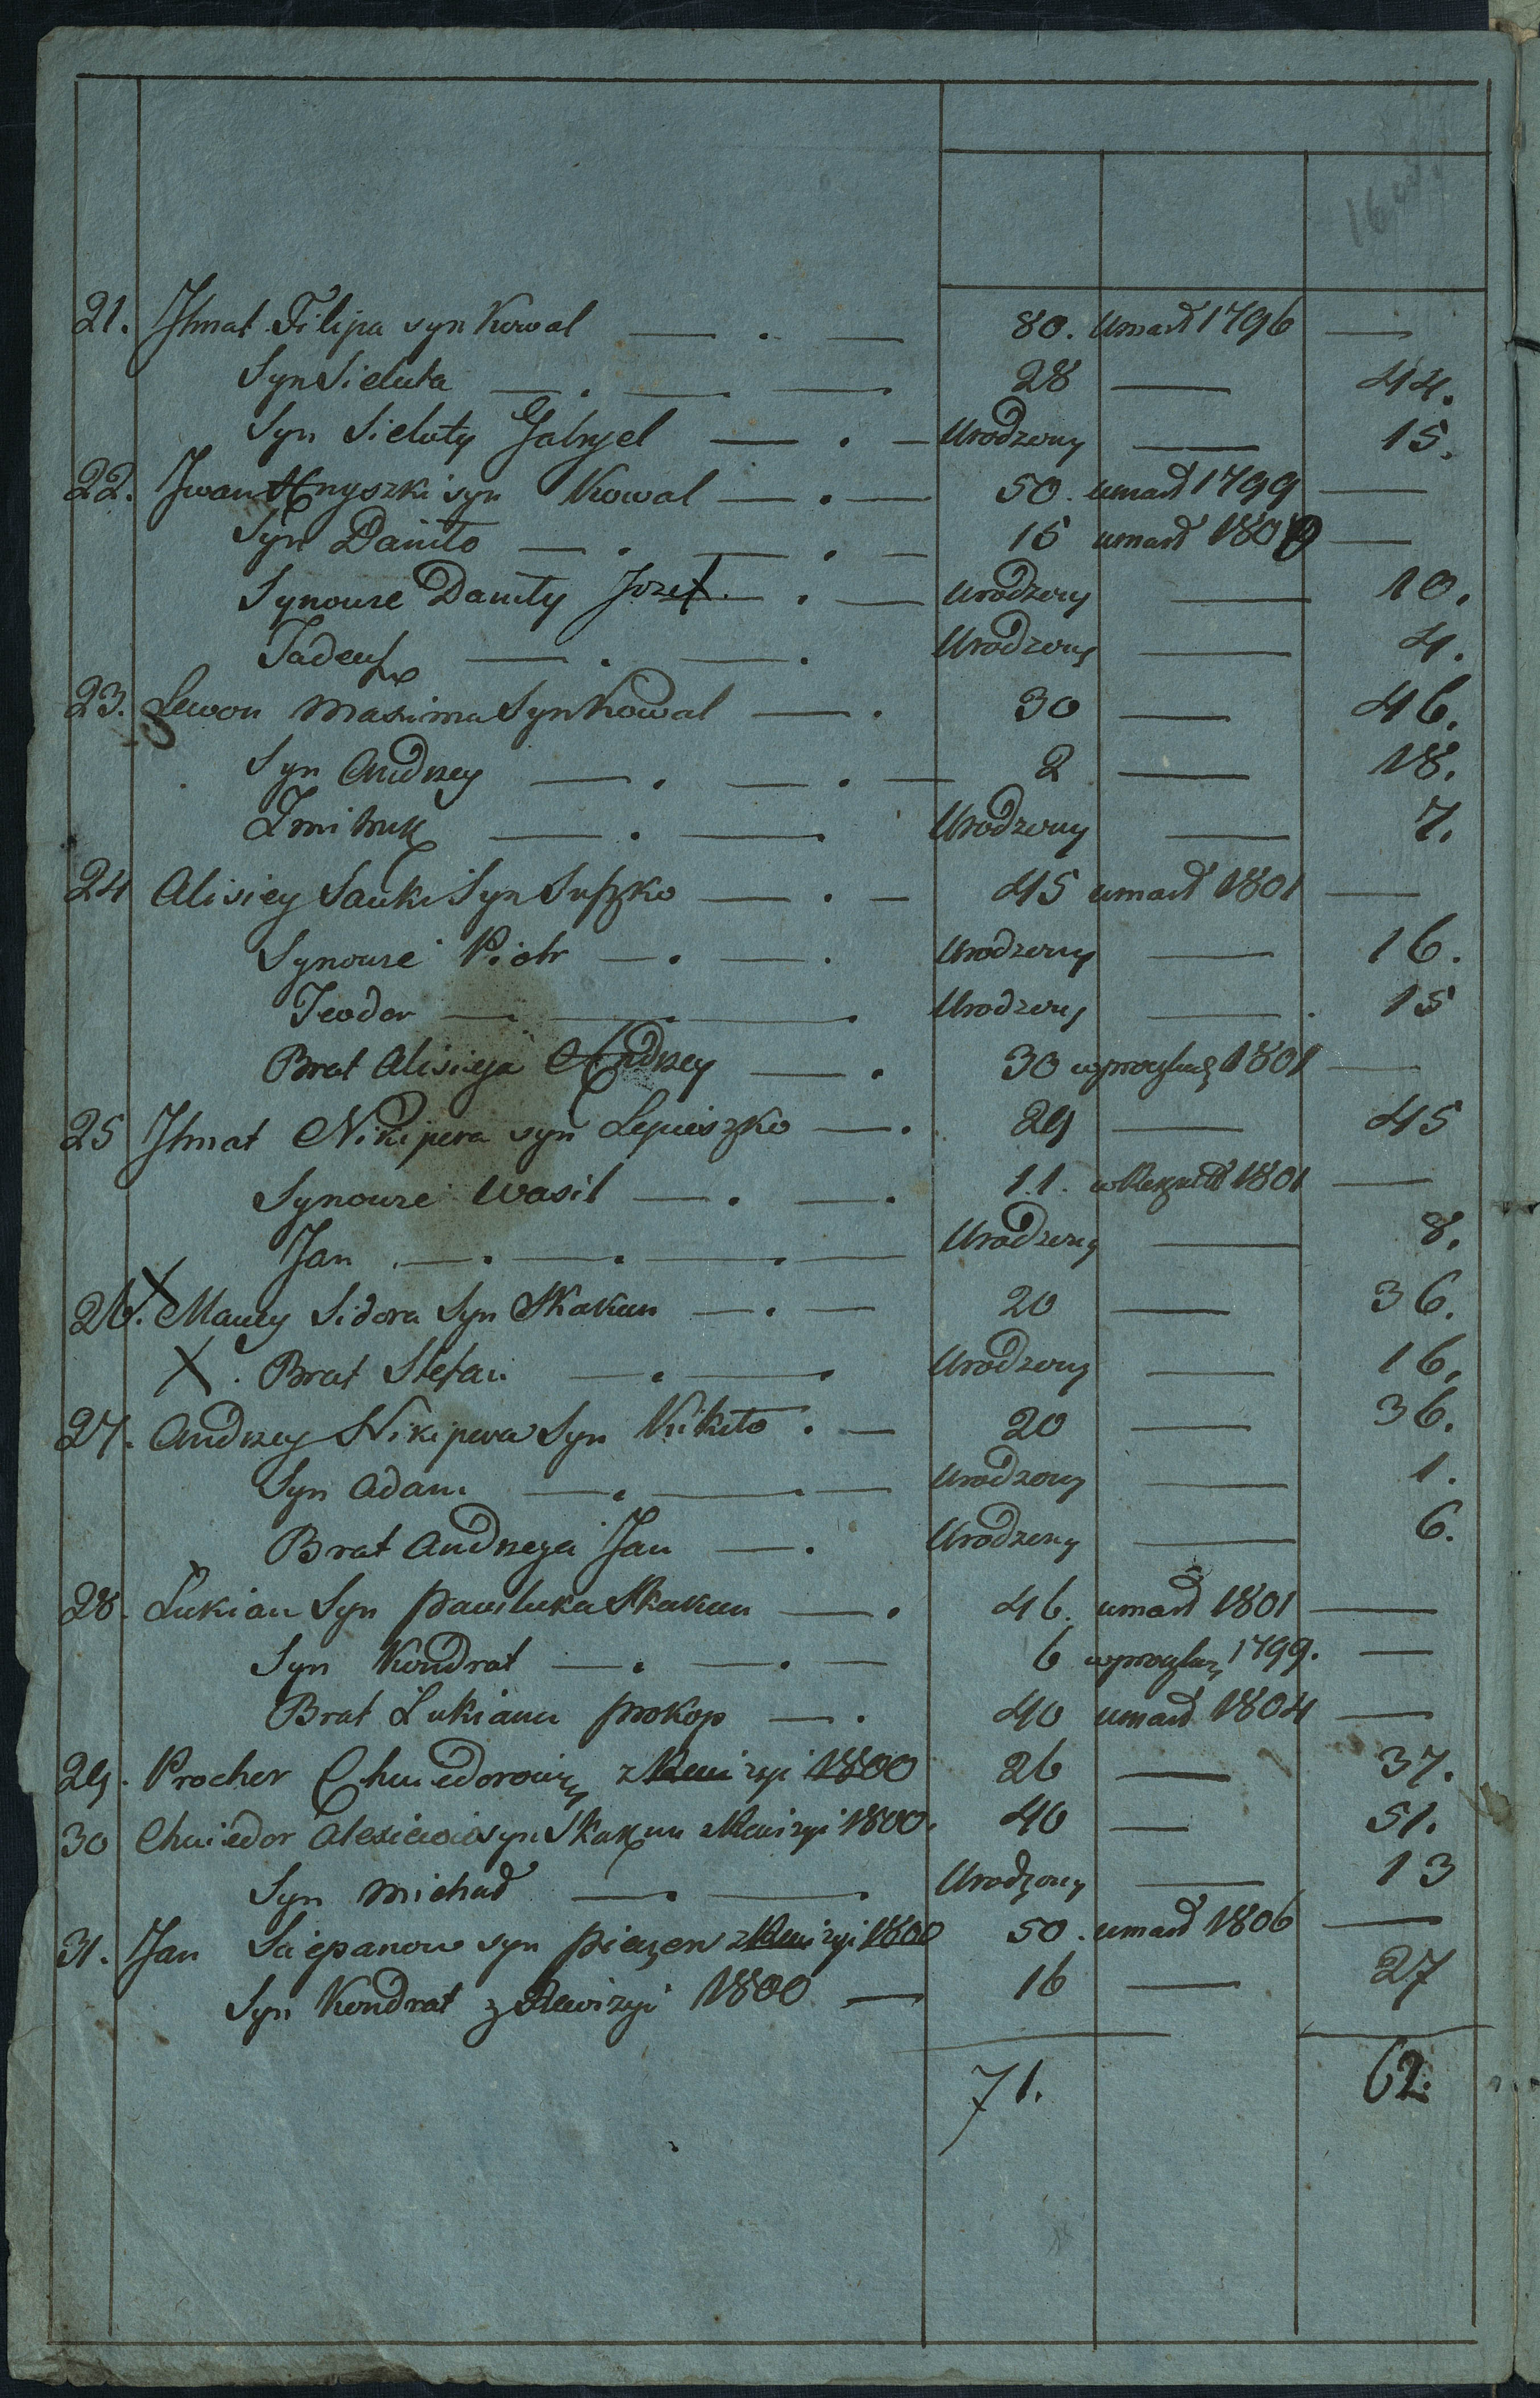 21. Jhnat Filipa syn Kowal — . — 80. umarł 1796 —
Syn Sieluta — . — . — 28 — 44.
Syn Sieluty Gabryel — . — Urodzony — 15.
22. Jwan Hryszki syn Kowal — . — 50. umarł 1799 —
Syn Daniło — . — . — 15 umarł 1809 —
Synowie Daniły Jozef. — . — Urodzony — 10.
Tadeusz — . — . Urodzony — 4.
23. Lewon Maxima Syn Kowal — . 30 — 46.
Syn Andrzey — . — . — 2 — 18.
Zmitruk — . — . Urodzony — 7.
24 Alisiey Sauki Syn Suszko — . — 45 umarł 1801 —
Synowie Piotr — . — . Urodzony — 16.
Teodor — . — . — . Urodzony — . 15
Brat Alisieja Andrzey — . 30 1801 —
25 Jhnat Nikipera syn Lepieszko — . 29 — 45
Synowie Wasil — . — . 11. 1801 —
Jan . — . — . — . — Urodzony — 8.
26. X Maciey Sidora Syn Skakun — . — 20 — 36.
X. Brat Stefan — . — . Urodzony — 16.
27. Andrzey Nikipera Syn Kikiło . — 20 — 36.
Syn Adam — . — . — Urodzony — 1.
Brat Andrzeja Jan — . Urodzony — 6.
28. Łukian Syn Pawluka Skakun — . 46. umarł 1801 —
Syn Kondrat — . — . — 6 1799. —
Brat Łukiana Prokop — . 40 umarł 1804 —
29. Procher Chwiedorowicz z Rewizyi 1800 26 — 37.
30 Chwiedor Alexiewia syn Skakun z Rewizyi 1800. 40 — 51.
Syn Michał — . — . Urodzony — 13
31. Jan Sciepanow syn z Rewizyi 1800 50. umarł 1806 —
Syn Kondrat z Rewizyi 1800 — 16 — 27
71. 62.